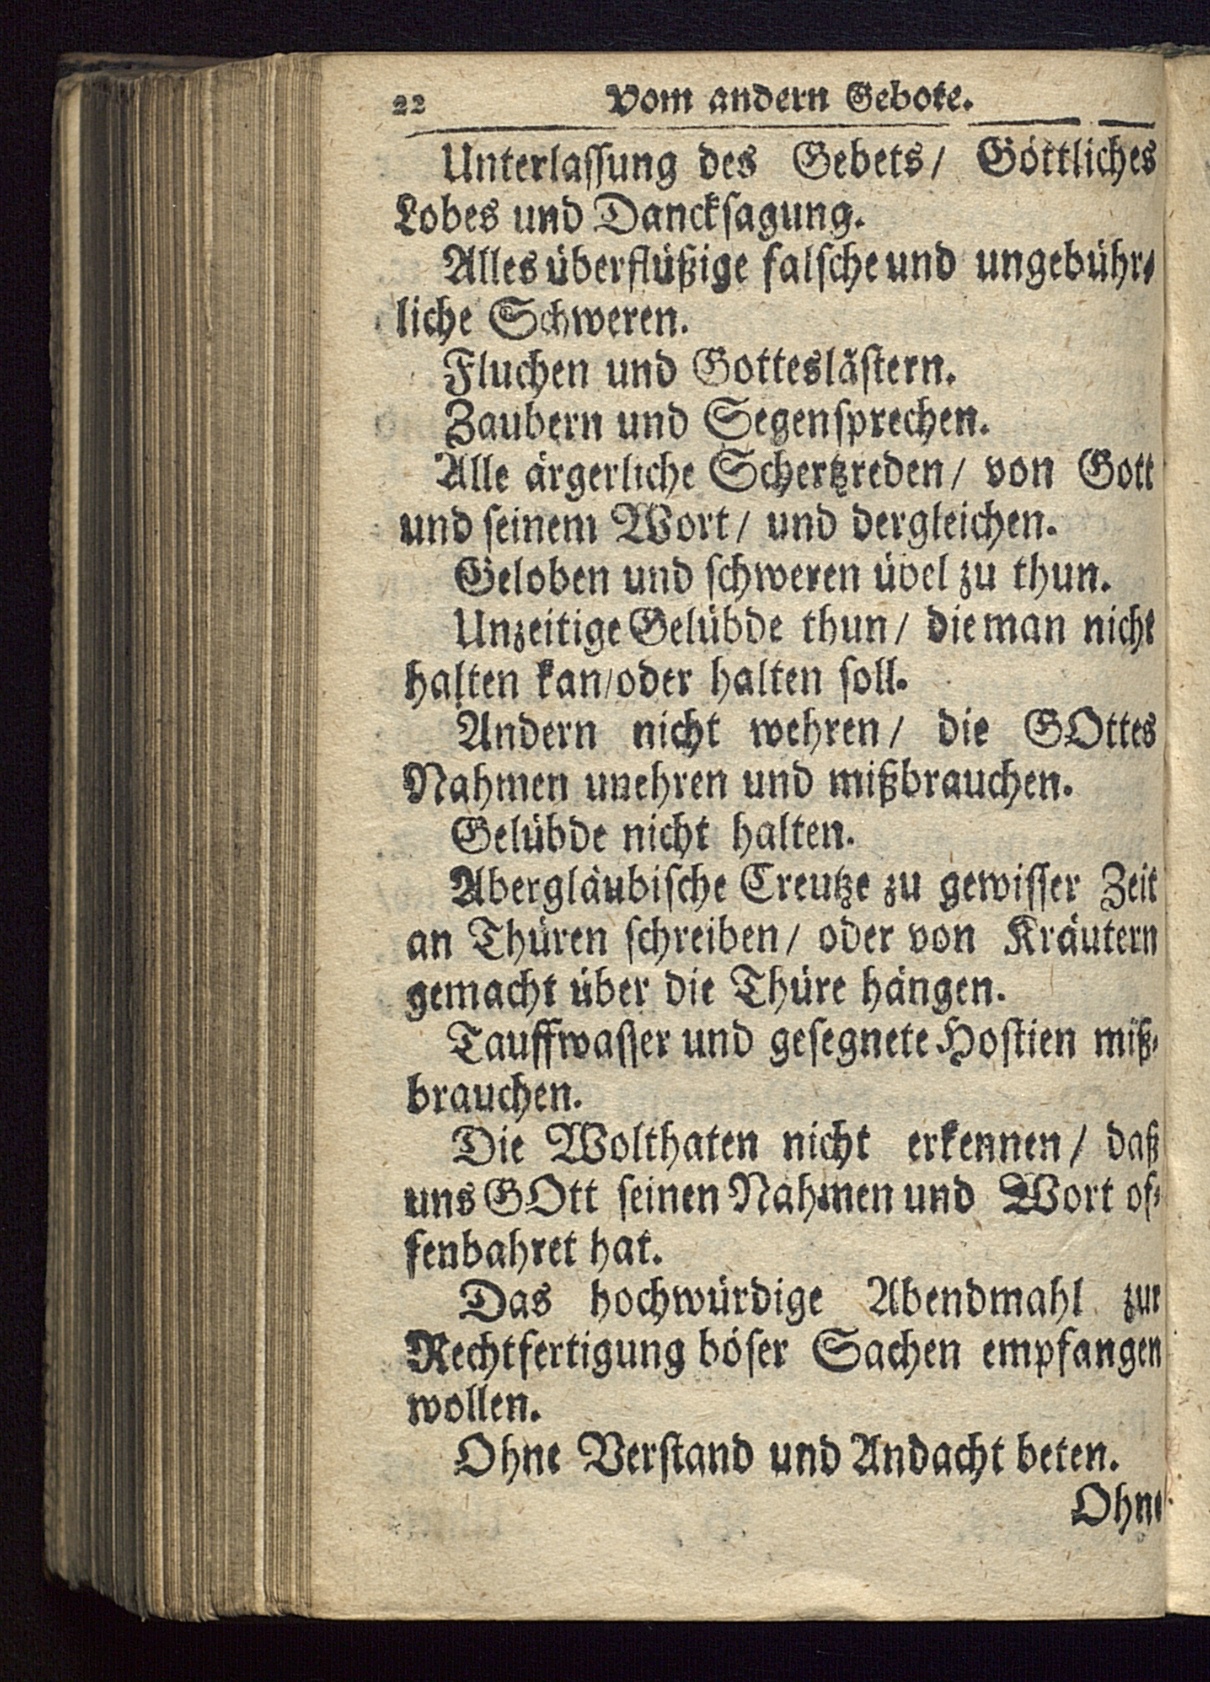 22 Vom andern Gebote.
Unterlassung des Gebets/ Göttliches
Lobes und Dancksagung.
Alles überflüßige falsche und ungebühr-
liche Schweren.
Fluchen und Gotteslästern.
Zaubern und Segensprechen.
Alle ärgerliche Schertzreden/ von Gott
und seinem Wort/ und dergleichen.
Geloben und schweren übel zu thun.
Unzeitige Gelübde thun/ die man nicht
halten kan/oder halten soll.
Andern nicht wehren/ die GOttes
Nahmen unehren und mißbrauchen.
Gelübde nicht halten.
Abergläubische Creutze zu gewisser Zeit
an Thüren schreiben/ oder von Kräutern
gemacht über die Thüre hängen.
Tauffwasser und gesegnete Hostien miß-
brauchen.
Die Wolthaten nicht erkennen/ daß
uns GOtt seinen Nahmen und Wort of-
fenbahret hat.
Das hochwürdige Abendmahl zur
Rechtfertigung böser Sachen empfangen
wollen.
Ohne Verstand und Andacht beten.
Ohne